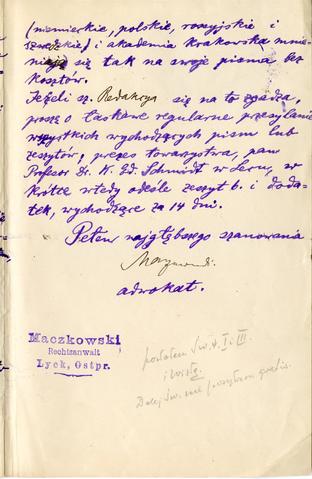 (niemieckie, polskie, rossyjskie i
szweckie) i akademia krakowska mnie-
niają się tak na swoje pisma bez
kosztów.
Jeżeli sz. Redakcya się na to zgadza,
proszę o łaskawe regularne przesyłanie
wszystkich wychodzących pism lub
zeszytów, prezes towarzystwa, pan
Profesor Dr. K. Ed. Schmidt w Lecu, w
krótce wtedy odeśle zeszyt 6. i doda-
tek, wychodzące za 14 dni.
Pełen najgłębszego szanowania
adwokat.
Maczkowski
Rechtsanwalt
Lyck, Ostpr.
posłałem Św. t. I i III
i Wisłę.
Dalej Św. nie posyłam gratis.